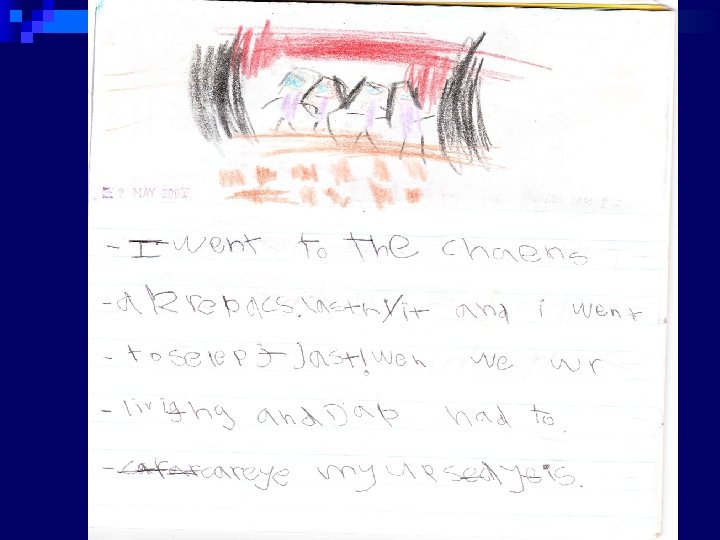 2 MAY 200
- I went to the chaens
- akrepacs. lastnyit and i went
- toselept Jast! wen we wr
- living and Dad had to.
- careye my upsedyeis.